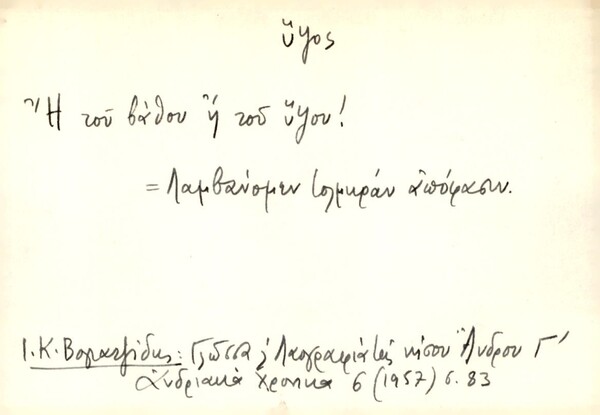 ὕψος
Ἢ τοῦ βάθου ἢ τοῦ ὕψου!
= Λαμβάνομεν τολμηρὰν ἀπόφασιν.
Ι. Κ. Βογιατζίδης: Γλῶσσα καὶ Λαογραφία τῆς νήσου Ἄνδρου Γ'
Ἀνδριακὰ Χρονικὰ 6 (1957) σ. 83